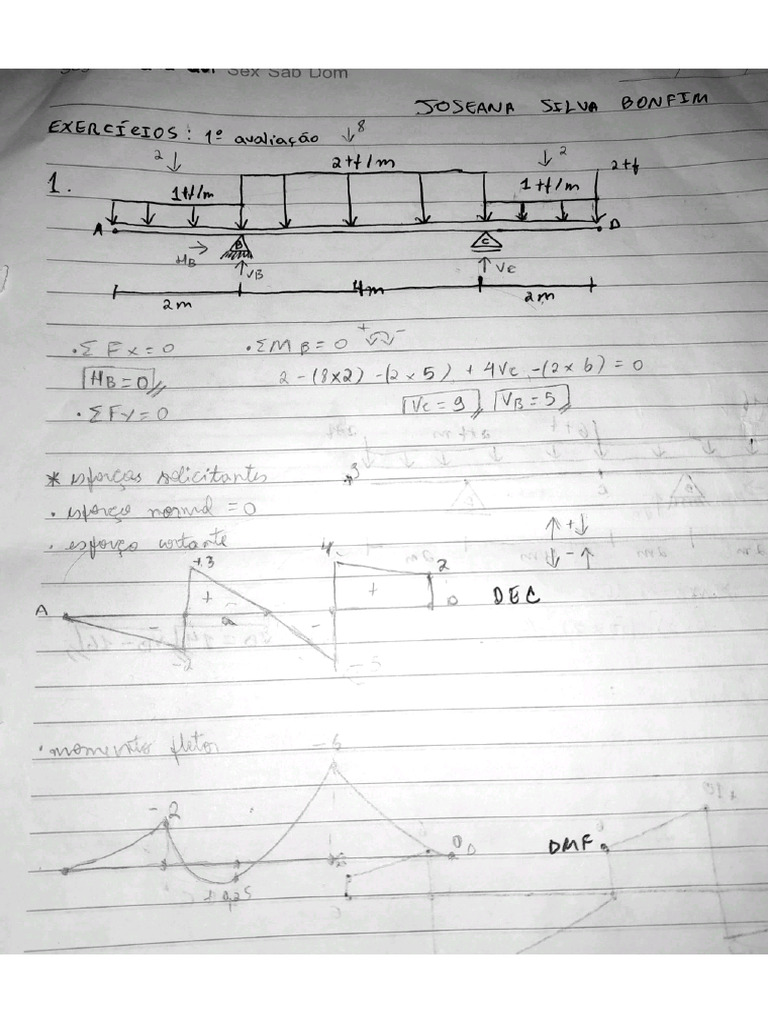 Sex Sab Dom
JOSEANA SILVA BONFIM
EXERCÍCIOS: 1º avaliação ↓8
2↓ 2tf/m ↓2 2tf
1. 1tf/m 1tf/m
A D
HB → B ↑VB C ↑VC
2m 4m 2m
• Σ Fx = 0 • ΣMB = 0 + -
HB = 0 2 - (8x2) - (2 x 5) + 4Vc - (2 x 6) = 0
• ΣFy = 0 Vc = 9 VB = 5
* esforços solicitantes
• esforço normal = 0
• esforço cortante ↑+↓
↓-↑
+3 4 2
A + - + 0 DEC
-2 -5
• momento fletor -6
-2
0 D DMF
+0,25